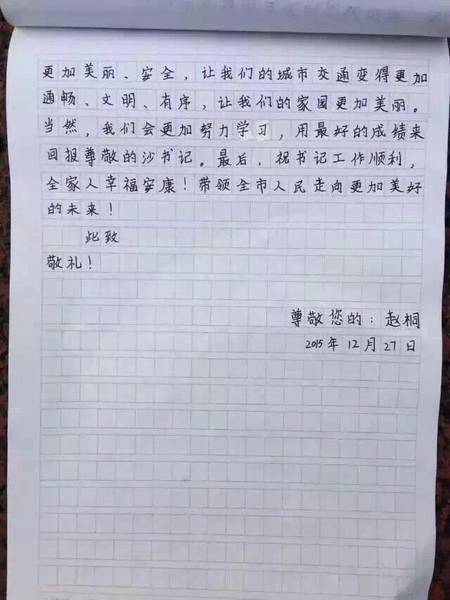 更加美丽、安全，让我们的城市交通变得更加
通畅、文明、有序，让我们的家园更加美丽。
当然，我们会更加努力学习，用最好的成绩来
回报尊敬的沙书记。最后，祝书记工作顺利，
全家人幸福安康！带领全市人民走向更加美好
的未来！
此致
敬礼！
尊敬您的：赵桐
2015年12月27日